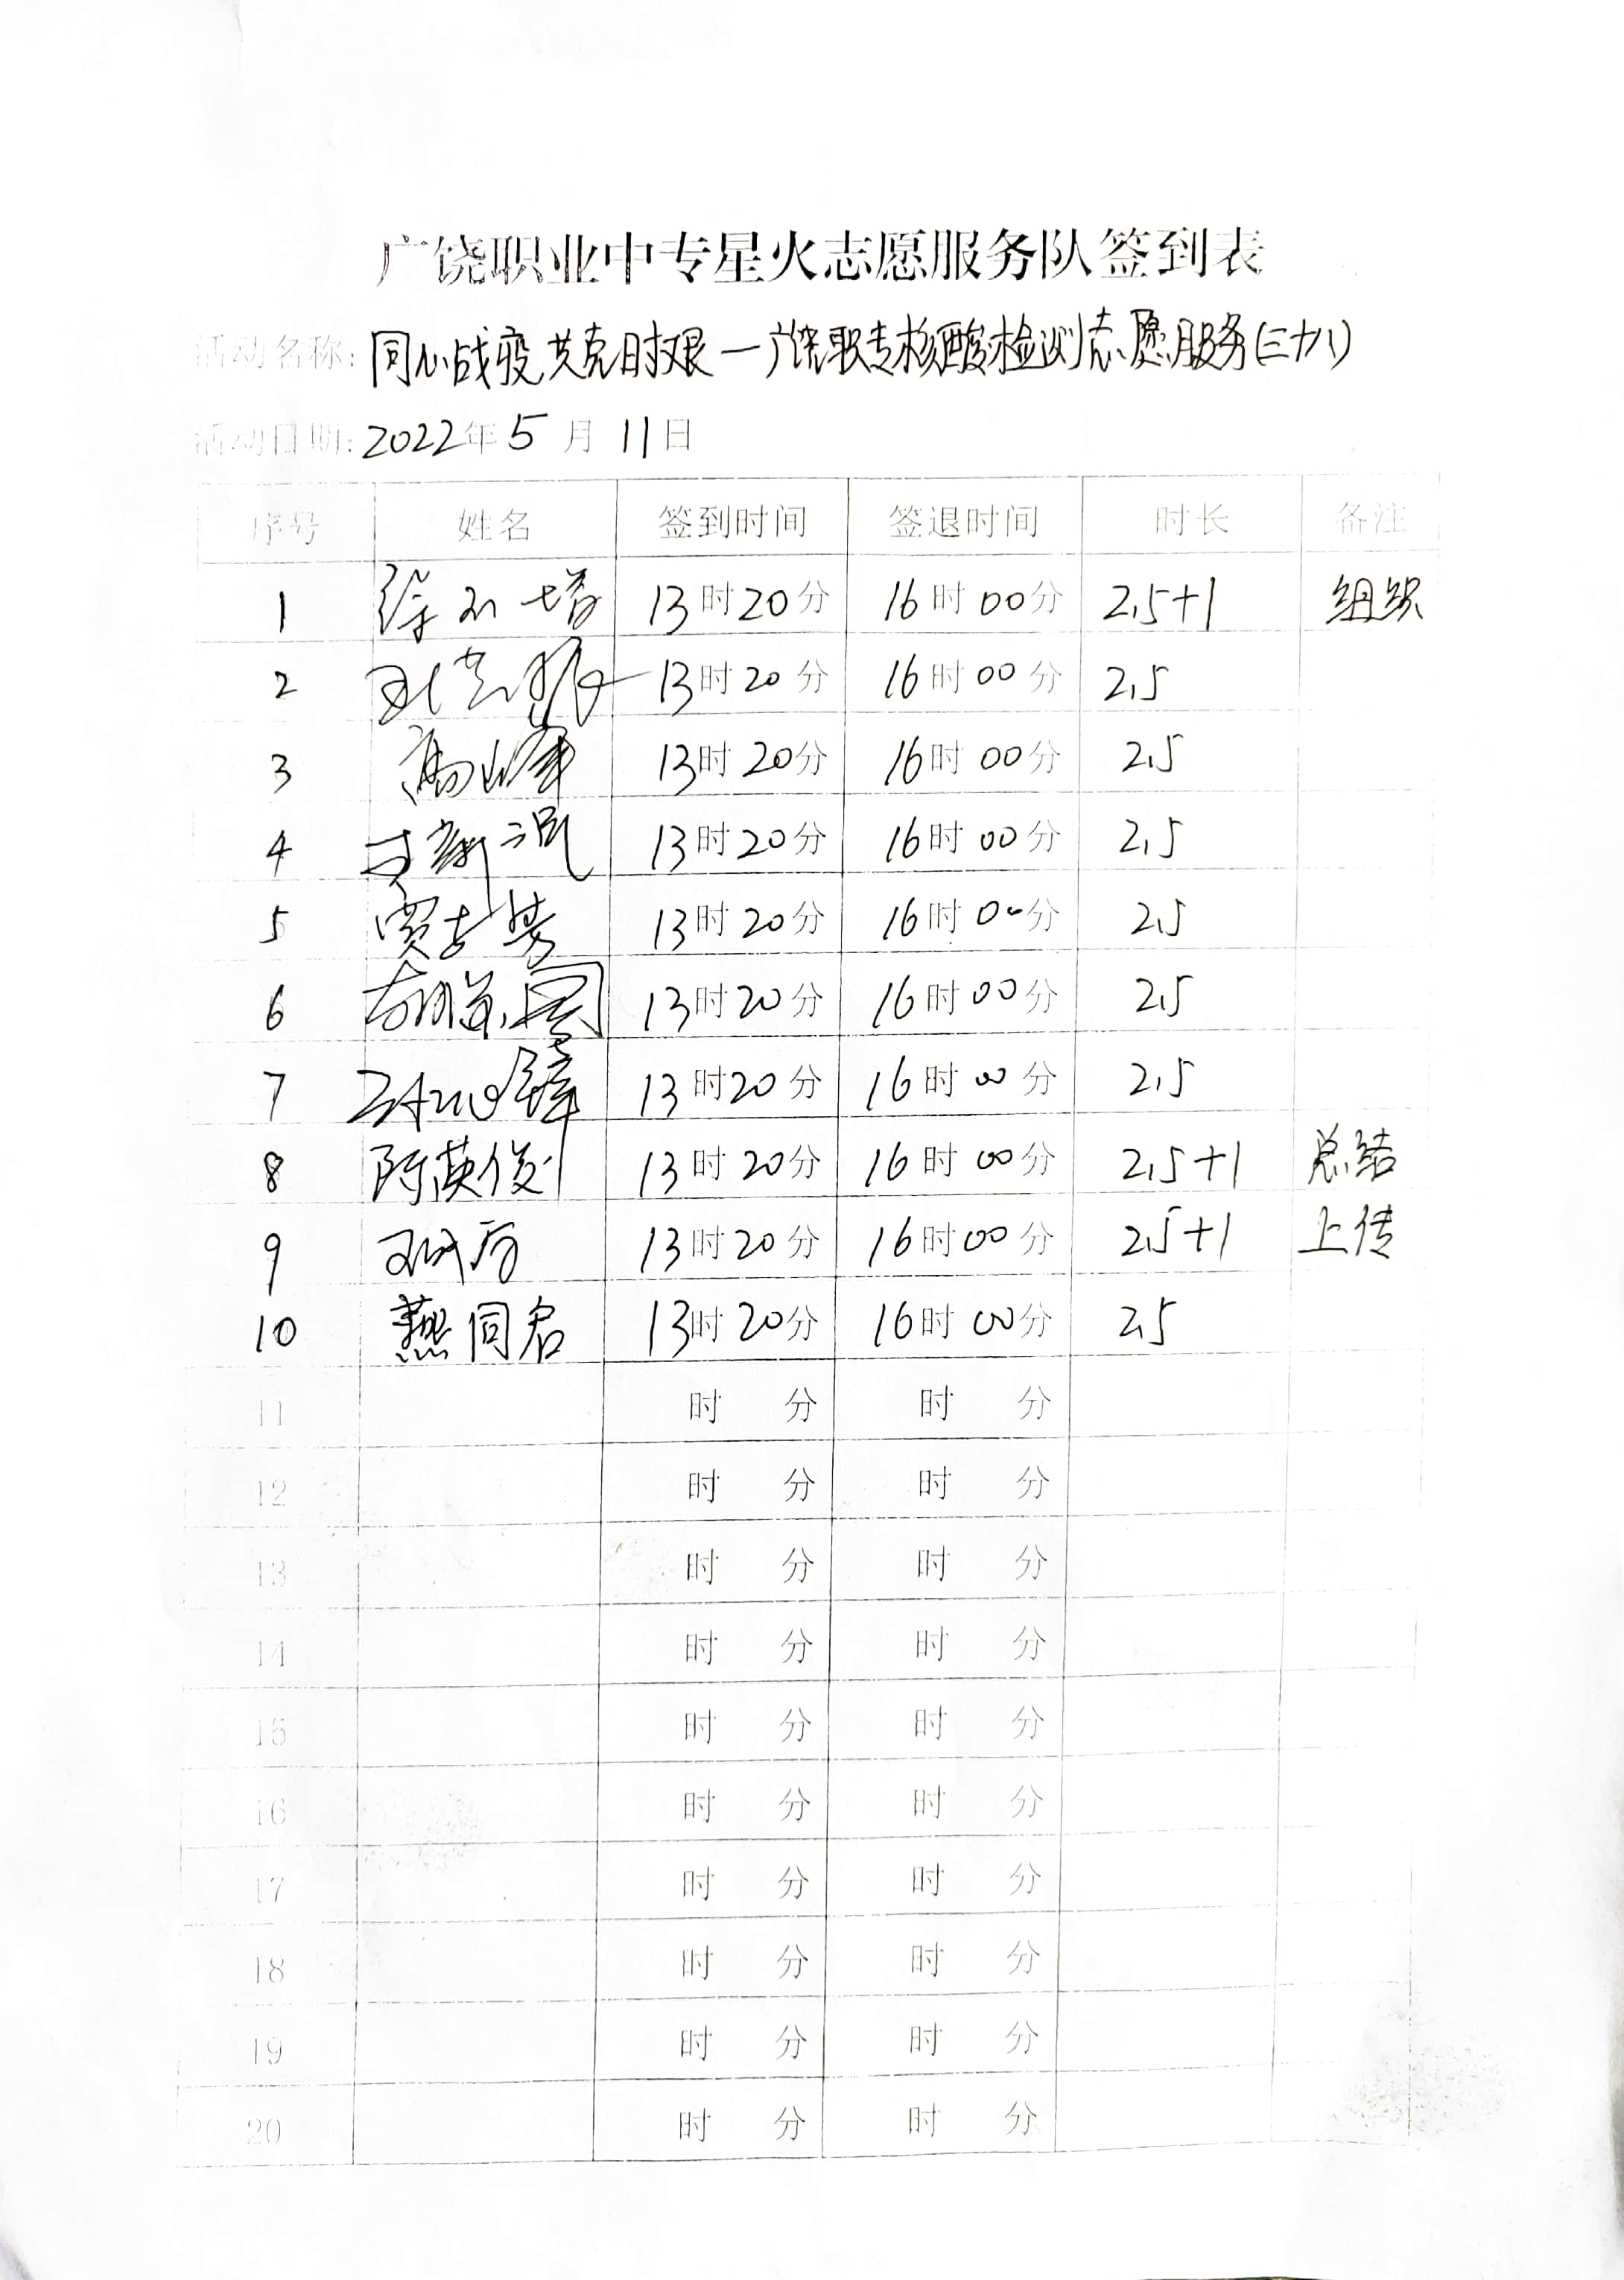 广饶职业中专星火志愿服务队签到表
活动名称: 同心战疫 共克时艰一广饶职专核酸检测志愿服务(三十八)
活动日期: 2022年5月11日
序号 姓名 签到时间 签退时间 时长 备注
1 13时20分 16时00分 2.5+1 组织
2 13时20分 16时00分 2.5
3 13时20分 16时00分 2.5
4 13时20分 16时00分 2.5
5 13时20分 16时00分 2.5
6 13时20分 16时00分 2.5
7 13时20分 16时00分 2.5
8 13时20分 16时00分 2.5+1 总结
9 13时20分 16时00分 2.5+1 上传
10 燕同君 13时20分 16时00分 2.5
11 时 分 时 分
12 时 分 时 分
13 时 分 时 分
14 时 分 时 分
15 时 分 时 分
16 时 分 时 分
17 时 分 时 分
18 时 分 时 分
19 时 分 时 分
20 时 分 时 分